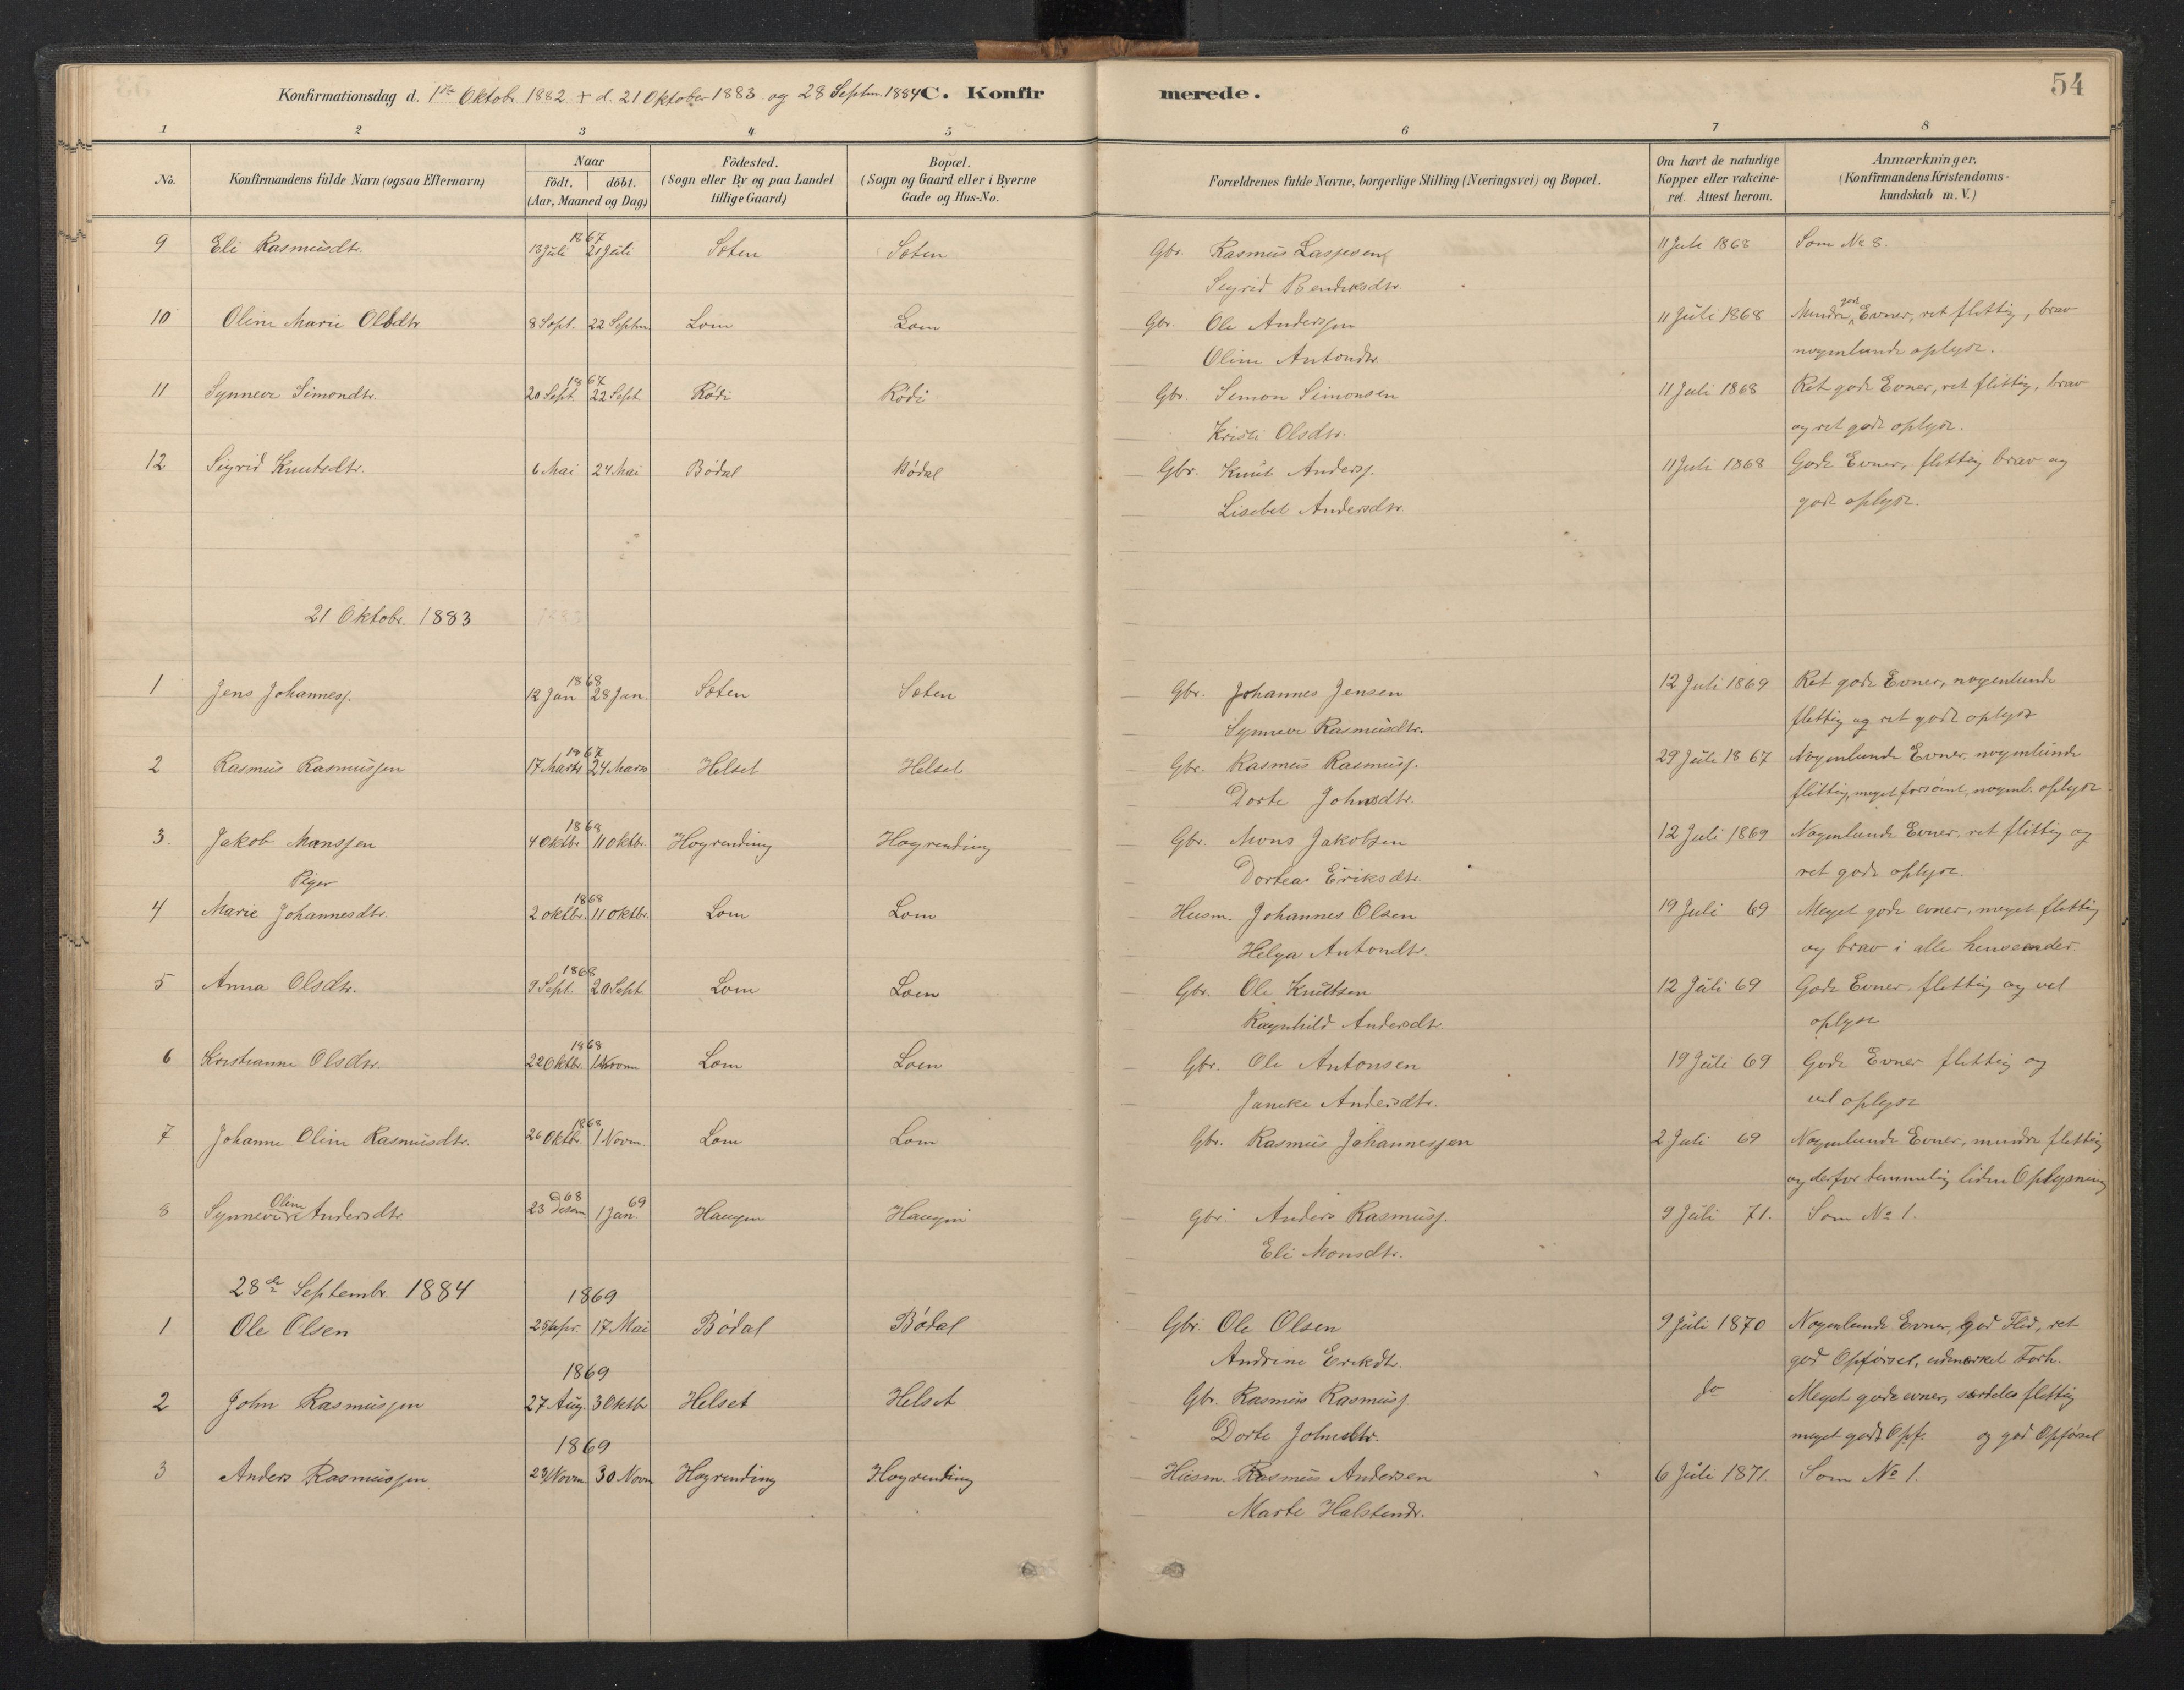 Konfirmationsdag d. 1ste Oktobr. 1882 + d. 21 Oktober 1883 og 28 Septm. 1884 C. Konfir merede. 54
1 2 3 4 5 6 7 8
No. Konfirmandens fulde Navn (ogsaa Efternavn) Naar födt. döbt. (Aar, Maaned og Dag) Födested. (Sogn eller By og paa Landet tillige Gaard) Bopæl. (Sogn og Gaard eller i Byerne Gade og Hus-No. Forældrenes fulde Navne, borgerlige Stilling (Næringsvei) og Bopæl. Om havt de naturlige Kopper eller vakcineret. Attest herom. Anmærkninger. (Konfirmandens Kristendomskundskab m. V.)
1867
9 Eli Rasmusdtr. 13 Juli 21 Juli Sæten Sæten Gbr. Rasmus Lassesen 11 Juli 1868 Som No 8.
Sigrid Bendiksdtr.
10 Oline Marie Olsdtr. 8 Sept. 22 Septm Loen Loen Gbr. Ole Anderssen 11 Juli 1868 Mindre god Evner, ret flittig, brav
Oline Antondtr. nogenlunde oplyst.
1867
11 Synneve Simondtr. 20 Sept. 22 Sept. Rödi Rödi Gbr. Simon Simonsen 11 Juli 1868 Ret gode Evner, ret flittig, brav
Kristi Olsdtr. og ret godt oplyst.
12 Sigrid Knutsdtr. 6 Mai 24 Mai Bödal Bödal Gbr. Knut Anderss. 11 Juli 1868 Gode Evner, flittig brav og
Lisebet Andersdtr. godt oplyst.
21 Oktobr. 1883
1868
1 Jens Johanness. 12 Jan 28 Jan. Sæten Sæten Gbr. Johannes Jensen 12 Juli 1869 Ret gode Evner, nogenlunde
Synneve Rasmusdtr. flittig og ret godt oplyst
1867
2 Rasmus Rasmussen 17 Marts 24 Marts Helset Helset Gbr. Rasmus Rasmuss. 29 Juli 1867 Nogenlunde Evner, nogenlunde
Dorte Johnsdtr. flittig, meget forsömt, nogenl. oplyst
1868
3. Jakob Monssen 4 Oktbr 11 Oktbr. Hogrending Hogrending Gbr. Mons Jakobsen 12 Juli 1869 Nogenlunde Evner, ret flittig og
Dortea Eriksdtr. ret godt oplyst.
Piger
1868
4 Marie Johannesdtr. 2 Oktbr. 11 Oktbr. Loen Loen Husm. Johannes Olsen 19 Juli 69 Meget gode evner, meget flittig
Helga Antondtr. og brav i alle henseender.
1868
5 Anna Olsdtr. 9 Sept. 20 Sept Loen Loen Gbr. Ole Knutsen 12 Juli 69 Gode Evner, flittig og vel
Ragnhild Andersdtr. oplyst
1868
6 Kristianne Olsdtr. 22 Oktbr. 1 Novm Loen Loen Gbr. Ole Antonsen 19 Juli 69 Gode Evner flittig og
Janike Andersdtr. vel oplyst
1868
7 Johanne Oline Rasmusdtr. 26 Oktbr. 1 Novm. Loen Loen Gbr. Rasmus Johannessen 2 Juli 69 Nogenlunde Evner, mindre flittig
og derfor temmelig liden Oplysning
68 69
8 Synneve Oline Andersdtr. 23 Desem 1 Jan. Haugen Haugen Gbr. Anders Rasmuss. 9 Juli 71. Som No 1.
Eli Monsdtr.
28de Septembr. 1884 1869
1 Ole Olsen 25 Apr. 17 Mai Bödal Bödal Gbr. Ole Olsen 9 Juli 1870 Nogenlunde Evner, god Flid, ret
Andrine Erikdtr. god Opførsel, udmærket Forh.
1869
2 John Rasmussen 27 Aug. 3 Oktbr Helset Helset Gbr. Rasmus Rasmuss. do Meget gode evner, særdeles flittig
Dorte Johnsdtr. meget godt Opf. og god Opførsel
1869
3 Anders Rasmussen 23 Novm 30 Novm Hogrending Hogrending Husm. Rasmus Andersen 6 Juli 1871. Som No 1.
Marte Halstendr.